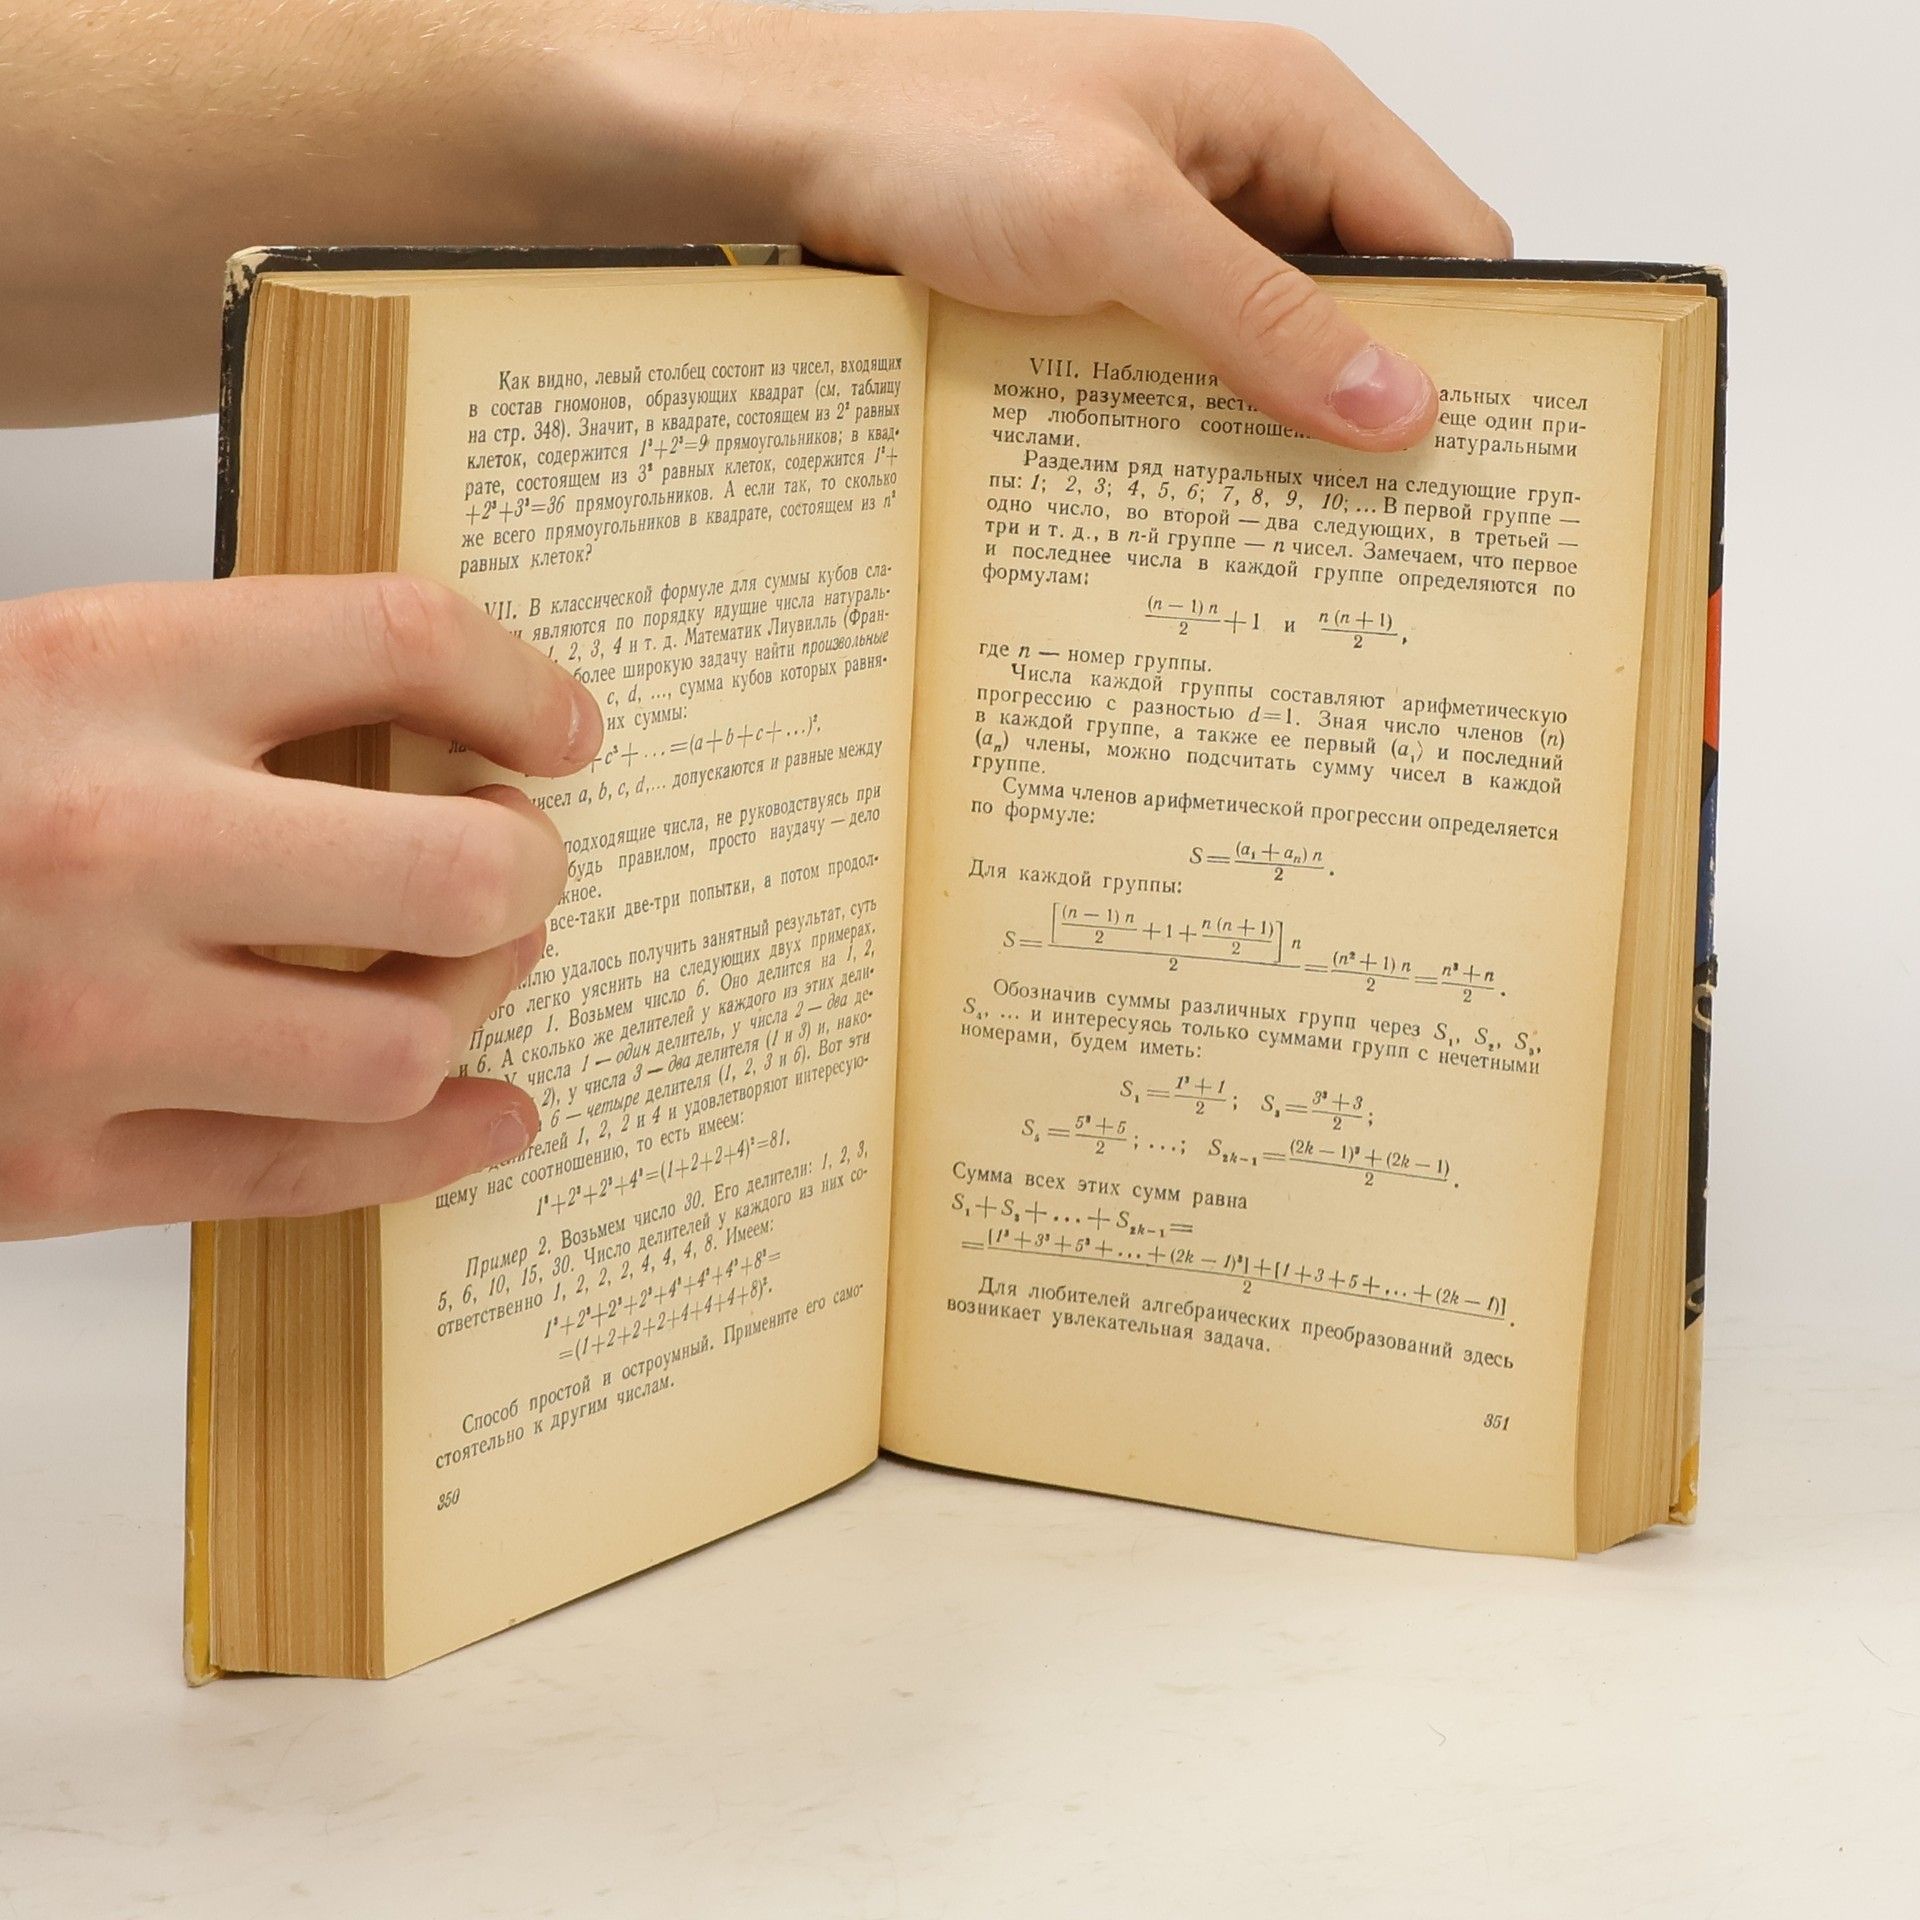 Как видно, левый столбец состоит из чисел, входящих
в состав гномонов, образующих квадрат (см. таблицу
на стр. 348). Значит, в квадрате, состоящем из 2² равных
клеток, содержится 1³+2³=9 прямоугольников; в квад-
рате, состоящем из 3² равных клеток, содержится 1³+
+2³+3³=36 прямоугольников. А если так, то сколько
же всего прямоугольников в квадрате, состоящем из n²
равных клеток?
VII. В классической формуле для суммы кубов сла-
являются по порядку идущие числа натураль-
1, 2, 3, 4 и т. д. Математик Лиувилль (Фран-
более широкую задачу найти произвольные
c, d, ..., сумма кубов которых равня-
их суммы:
+c³+...=(a+b+c+...)².
чисел a, b, c, d,... допускаются и равные между
подходящие числа, не руководствуясь при
будь правилом, просто наудачу — дело
жное.
все-таки две-три попытки, а потом продол-
ллю удалось получить занятный результат, суть
ого легко уяснить на следующих двух примерах.
Пример 1. Возьмем число 6. Оно делится на 1, 2,
и 6. А сколько же делителей у каждого из этих дели-
У числа 1 — один делитель, у числа 2 — два де-
2), у числа 3 — два делителя (1 и 3) и, нако-
6 — четыре делителя (1, 2, 3 и 6). Вот эти
делителей 1, 2, 2 и 4 и удовлетворяют интересую-
щему нас соотношению, то есть имеем:
1³+2³+2³+4³=(1+2+2+4)²=81.
Пример 2. Возьмем число 30. Его делители: 1, 2, 3,
5, 6, 10, 15, 30. Число делителей у каждого из них со-
ответственно 1, 2, 2, 2, 4, 4, 4, 8. Имеем:
1³+2³+2³+2³+4³+4³+4³+8³=
=(1+2+2+2+4+4+4+8)².
Способ простой и остроумный. Примените его само-
стоятельно к другим числам.
350
VIII. Наблюдения альных чисел
можно, разумеется, вести еще один при-
мер любопытного соотноше натуральными
числами.
Разделим ряд натуральных чисел на следующие груп-
пы: 1; 2, 3; 4, 5, 6; 7, 8, 9, 10; ... В первой группе —
одно число, во второй — два следующих, в третьей —
три и т. д., в n-й группе — n чисел. Замечаем, что первое
и последнее числа в каждой группе определяются по
формулам:
(n — 1) n / 2 + 1 и n (n + 1) / 2,
где n — номер группы.
Числа каждой группы составляют арифметическую
прогрессию с разностью d=1. Зная число членов (n)
в каждой группе, а также ее первый (a₁) и последний
(aₙ) члены, можно подсчитать сумму чисел в каждой
группе.
Сумма членов арифметической прогрессии определяется
по формуле:
S = (a₁ + aₙ) n / 2.
Для каждой группы:
S = [(n — 1) n / 2 + 1 + n (n + 1) / 2] n / 2 = (n² + 1) n / 2 = n³ + n / 2.
Обозначив суммы различных групп через S₁, S₂, S₃,
S₄, ... и интересуясь только суммами групп с нечетными
номерами, будем иметь:
S₁ = 1³ + 1 / 2; S₃ = 3³ + 3 / 2;
S₅ = 5³ + 5 / 2; ...; S₂ₖ₋₁ = (2k — 1)³ + (2k — 1) / 2.
Сумма всех этих сумм равна
S₁ + S₃ + ... + S₂ₖ₋₁ =
= [1³ + 3³ + 5³ + ... + (2k — 1)³] + [1 + 3 + 5 + ... + (2k — 1)] / 2.
Для любителей алгебраических преобразований здесь
возникает увлекательная задача.
351